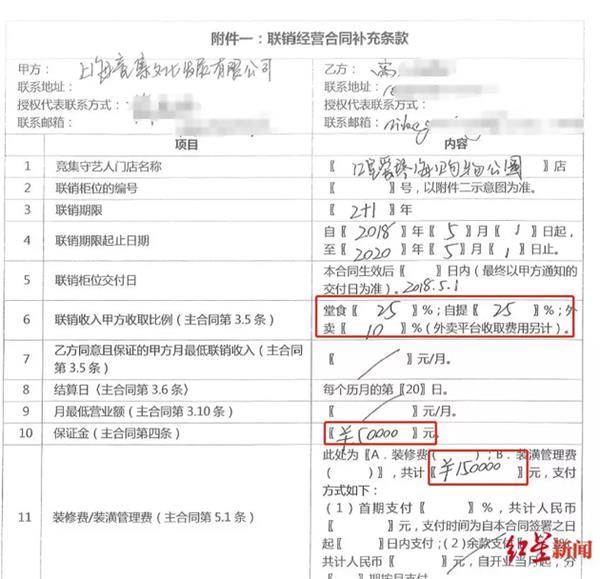 附件一：联销经营合同补充条款
甲方： 上海竞集文化发展有限公司
乙方：
联系地址：
联系地址：
授权代表联系方式：
授权代表联系方式：
联系邮箱：
联系邮箱：
项目 内容
1 竞集守艺人门店名称 【 环球港购物公园 】店
2 联销柜位的编号 【 】号，以附件二示意图为准。
3 联销期限 【 2+1 】年
4 联销期限起止日期 自【 2018 】年【 5 】月【 1 】日起，
至【 2020 】年【 5 】月【 1 】日止。
5 联销柜位交付日 本合同生效后【 】日内（最终以甲方通知的
交付日为准）。2018.5.1
6 联销收入甲方收取比例（主合同 3.5 条） 堂食【 25 】%；自提【 25 】%；外
卖【 10 】%（外卖平台收取费用另计）。
7 乙方同意且保证的甲方月最低联销收入（主合同
第 3.5 条） 【 】元/月。
8 结算日（主合同第 3.6 条） 每个历月的第【20】日。
9 月最低营业额（主合同第 3.10 条） 【 】元/月。
10 保证金（主合同第四条） 【 ￥50000 】元。
11 装修费/装潢管理费（主合同第 5.1 条） 此处为【A．装修费（ ）；B．装潢管理费
（ ）】，共计【 ￥150000 】元，支付
方式如下：
（1）首期支付【 】%，共计人民币
【 】元，支付时间为自本合同签署之日
起【 】日内支付；（2）余款支付【
】%，共计人民币【 】元，自开业当月起，分
【 】期按月支付
红星新闻